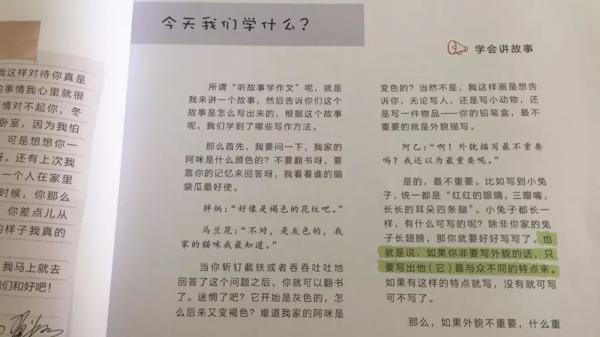 我这样对待你真是
的事情我心里就很
情对不起你，冬
卧室，因为我怕
可是想想你一
呀。还有上次我
一个人在家里
时候，那你
你差点儿从
的样子我真的
我马上就去
们和好吧！
今天我们学什么？
学会讲故事
所谓“听故事学作文”呢，就是
我来讲一个故事，然后告诉你们这个
故事是怎么写出来的，根据这个故事
呢，我们学到了哪些写作方法。
那么首先，我要问一下，我家的
阿咪是什么颜色的？不要翻书呀，要
靠你的记忆来回答呀，我看看谁的脑
袋瓜最好使。
胖炳：“好像是褐色的花纹吧。”
马兰花：“不对，是灰色的，我
家的猫咪我最知道。”
当你斩钉截铁或者吞吞吐吐地
回答了这个问题之后，你就可以翻书
了。迷惘了吧？它开始是灰色的，怎
么后来又变褐色？难道我家的阿咪是
变色的？当然不是，我这样画是想告
诉你，无论写人，还是写小动物，还
是写一件物品——你的铅笔盒，最不
重要的就是外貌描写。
阿乙：“啊！外貌描写最不重要
吗？我还以为最重要呢。”
是的，最不重要。比如写到小兔
子，统一都是“红红的眼睛，三瓣嘴，
长长的耳朵四条腿”。小兔子都长一
样，有什么可写的呢？除非你家的兔
子长翅膀，那你就要好好写写了。也
就是说，如果你非要写外貌的话，只
要写出他（它）最与众不同的特点来。
如果有这样的特点就写，没有就可写
可不写了。
那么，如果外貌不重要，什么重